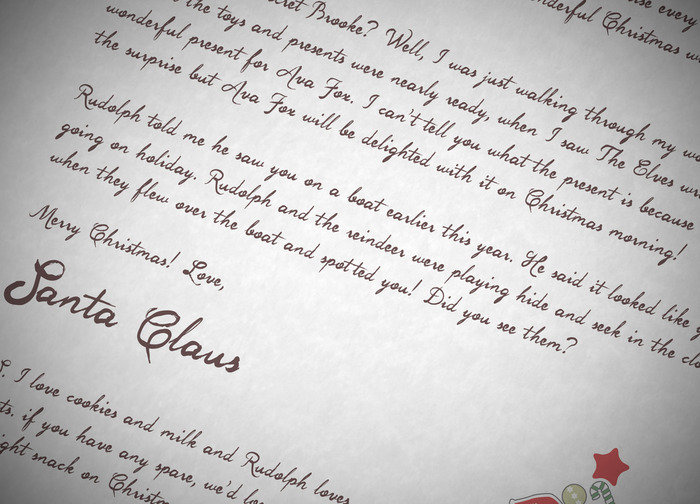 use every
nderful Christmas w
cret Brooke? Well, I was just walking through my w
the toys and presents were nearly ready, when I saw The Elves w
wonderful present for Ava Fox. I can't tell you what the present is because
the surprise but Ava Fox will be delighted with it on Christmas morning!
Rudolph told me he saw you on a boat earlier this year. He said it looked like y
going on holiday. Rudolph and the reindeer were playing hide and seek in the clo
when they flew over the boat and spotted you! Did you see them?
Merry Christmas! Love,
Santa Claus
S. I love cookies and milk and Rudolph loves
ts. if you have any spare, we'd lo
ight snack on Christm